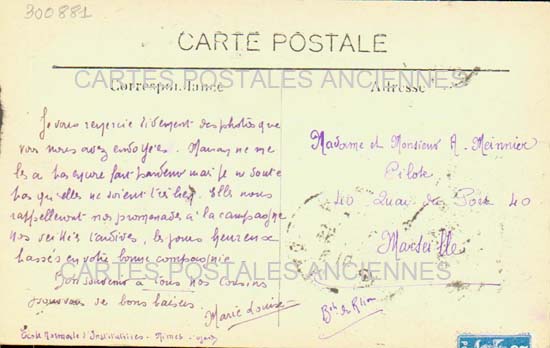 300881
CARTE POSTALE
CARTES POSTALES ANCIENNES
Correspondance
Adresse
Je vous remercie vivement des photos que
vous nous avez envoyées. Maman ne me
les a pas encore fait parvenir mais je ne doute
pas qu'elles ne soient très bien. Elles nous
rappelleront nos promenades à la campagne
nos veillées tardives, les jours heureux
passés en votre bonne compagnie.
CARTES POSTALES ANCIENNES
Bon souvenir à tous nos cousins
de bons baisers
Marie Louise
Ecole Normale d'Institutrices - Nimes - Gard
Madame et Monsieur A. Meinnier
Pilote
40 Quai du Port 40
Marseille
Bch du Rhone